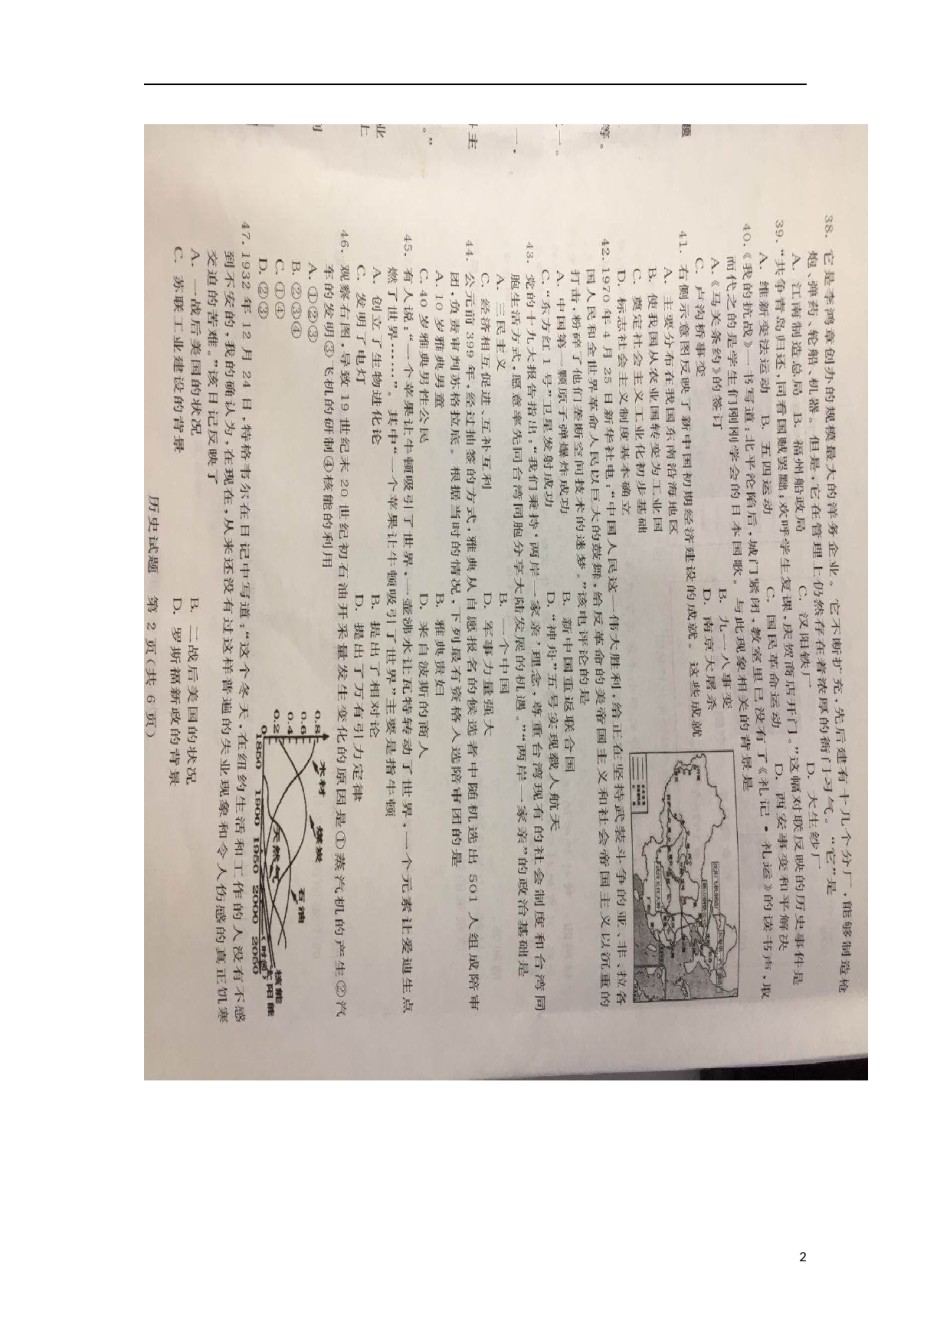 38. 它是李鸿章创办的规模最大的洋务企业。它不断扩充,先后建有十几个分厂,能够制造枪
炮、弹药、轮船、机器。但是,它在管理上仍然存在着浓厚的衙门习气。“它”是
A. 江南制造总局 B. 福州船政局 C. 汉阳铁厂 D. 大生纱厂
39. “共争青岛归还,同看国贼罢黜;欢呼学生复课,庆贺商店开门。”这幅对联反映的历史事件是
A. 维新变法运动 B. 五四运动 C. 国民革命运动 D. 西安事变和平解决
40. 《我的抗战》一书写道:北平沦陷后,城门紧闭,教室里已没有了《礼记·礼运》的读书声,取
而代之的是学生们刚刚学会的日本国歌。与此现象相关的背景是
A. 《马关条约》的签订 B. 九一八事变
C. 卢沟桥事变 D. 南京大屠杀
41. 右侧示意图反映了新中国初期经济建设的成就。这些成就
A. 主要分布在我国东南沿海地区
B. 使我国从农业国转变为工业国
C. 奠定社会主义工业化初步基础
D. 标志社会主义制度基本确立
42. 1970年4月25日新华社电:“中国人民这一伟大胜利,给正在坚持武装斗争的亚、非、拉各
国人民和全世界革命人民以巨大的鼓舞,给反革命的美帝国主义和社会帝国主义以沉重的
打击,粉碎了他们垄断空间技术的迷梦。”该电评论的是
A. 中国第一颗原子弹爆炸成功 B. 新中国重返联合国
C. “东方红1号”卫星发射成功 D. “神舟”五号实现载人航天
43. 党的十九大报告指出:“我们秉持‘两岸一家亲’理念,尊重台湾现有的社会制度和台湾同
胞生活方式,愿意率先同台湾同胞分享大陆发展的机遇。”“两岸一家亲”的政治基础是
A. 三民主义 B. 一个中国
C. 经济相互促进、互补互利 D. 军事力量强大
44. 公元前399年,经过抽签的方式,雅典从自愿报名的候选者中随机选出501人组成陪审
团,负责审判苏格拉底。根据当时的情况,下列最有资格入选陪审团的是
A. 10岁雅典男童 B. 雅典贵妇
C. 40岁雅典男性公民 D. 来自波斯的商人
45. 有人说:“一个苹果让牛顿吸引了世界,一壶沸水让瓦特转动了世界,一个元素让爱迪生点
燃了世界……”。其中“一个苹果让牛顿吸引了世界”主要是指牛顿
A. 创立了生物进化论 B. 提出了相对论
C. 发明了电灯 D. 提出了万有引力定律
46. 观察右图,导致19世纪末20世纪初石油开采量发生变化的原因是①蒸汽机的产生②汽
车的发明③飞机的研制④核能的利用
A. ①②③
B. ②③④
C. ①④
D. ②③
0.8
0.6
0.4
0.2
0
木材
煤炭
石油
天然气
核能
太阳能
1850 1900 1950 2000 2050 时间
47. 1932年12月24日,特格韦尔在日记中写道:“这个冬天,在纽约生活和工作的人没有不感
到不安的,我的确认为,在现在,从来还没有过这样普遍的失业现象和令人伤感的真正饥寒
交迫的苦难。”该日记反映了
A. 一战后美国的状况 B. 二战后美国的状况
C. 苏联工业建设的背景 D. 罗斯福新政的背景
历史试题 第2页(共6页)
2